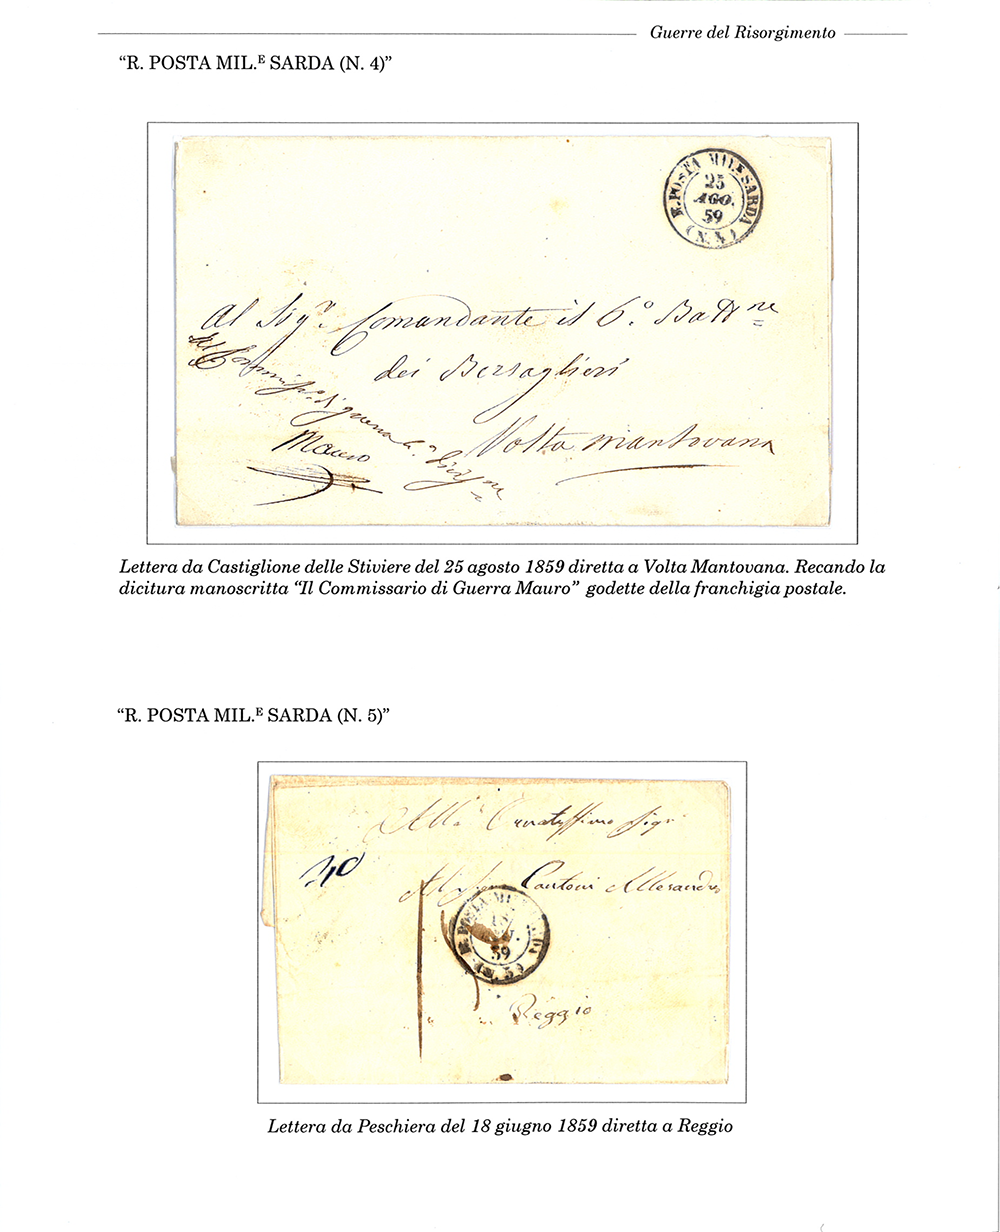 Guerre del Risorgimento
“R. POSTA MIL.E SARDA (N. 4)”
R. POSTA MIL.E SARDA
25
AGO.
59
(N. 4)
Al Sigr. Comandante il 6.o Battne
dei Bersaglieri
Volta Mantovana
Il Commissro di guerra
Mauro
Lettera da Castiglione delle Stiviere del 25 agosto 1859 diretta a Volta Mantovana. Recando la
dicitura manoscritta “Il Commissario di Guerra Mauro” godette della franchigia postale.
“R. POSTA MIL.E SARDA (N. 5)”
Cantoni
R. POSTA MI
18
59
(N. 5)
Reggio
Lettera da Peschiera del 18 giugno 1859 diretta a Reggio